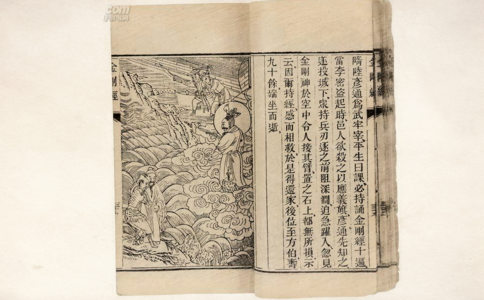 金剛經
隋陸彥通爲武牢宰平生日課必持誦金剛經十遍
當李密盜起時邑人欲殺之以應義旗彥通先知之
遂投城下衆持兵刃逐之前阻深澗迫急躍入忽見
金剛神於空中令人接其臂置之石上都無所損示
云因爾持經感而相救於是得還家後位至方伯壽
九十餘端坐而逝
金剛經
.com